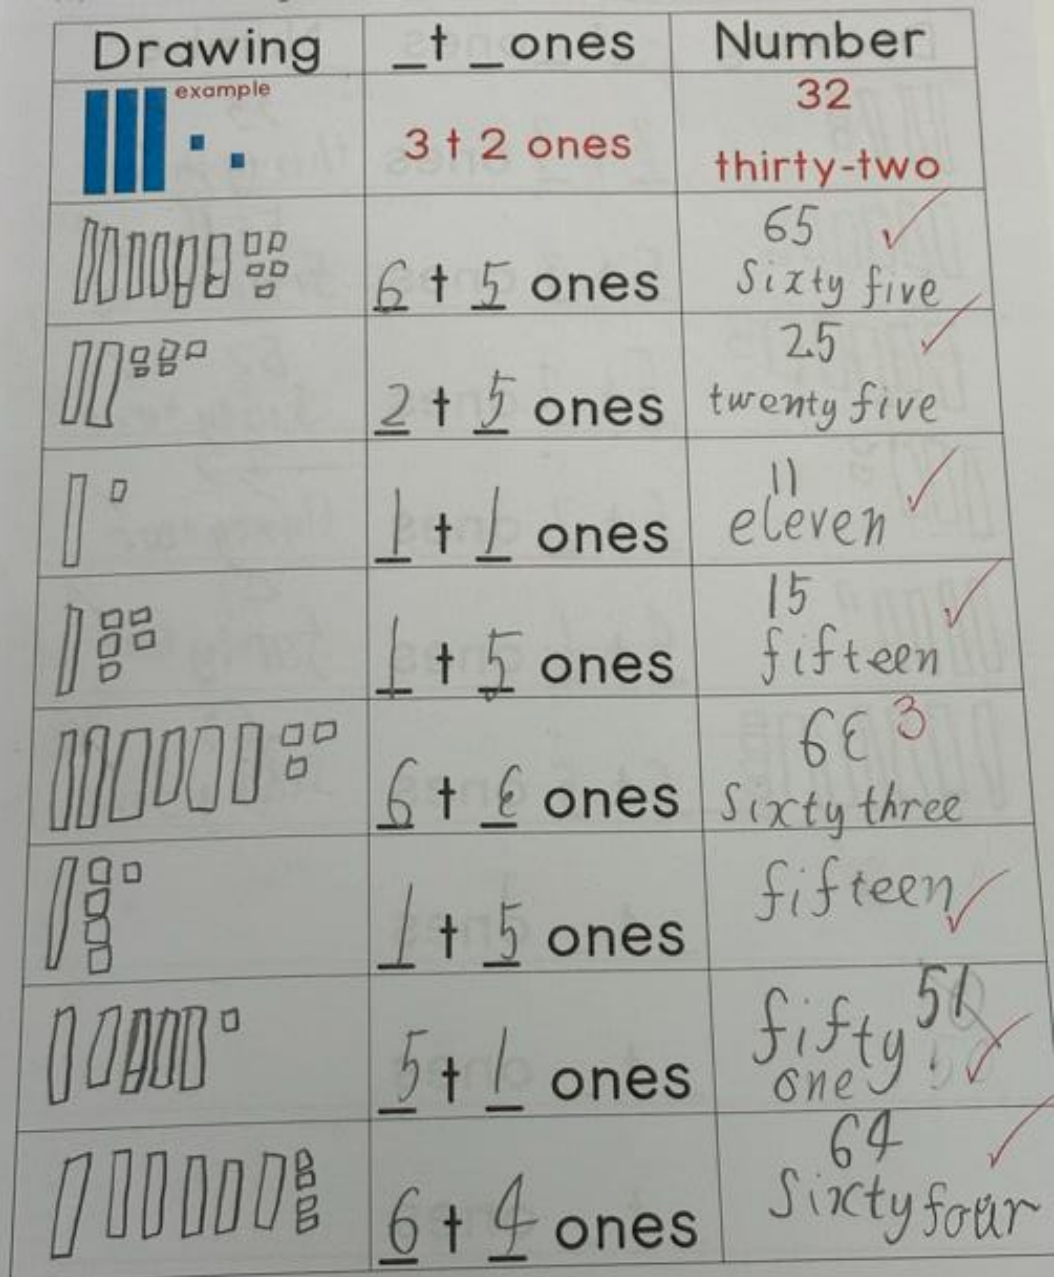 Drawing _t _ones Number
example
32
3 t 2 ones
thirty-two
65
6 t 5 ones
Sixty five
25
2 t 5 ones
twenty five
11
1 t 1 ones
eleven
15
1 t 5 ones
fifteen
6Ɛ 3
6 t Ɛ ones
Sixty three
1 t 5 ones
fifteen
51
5 t 1 ones
fifty
one
64
6 t 4 ones
Sixty four